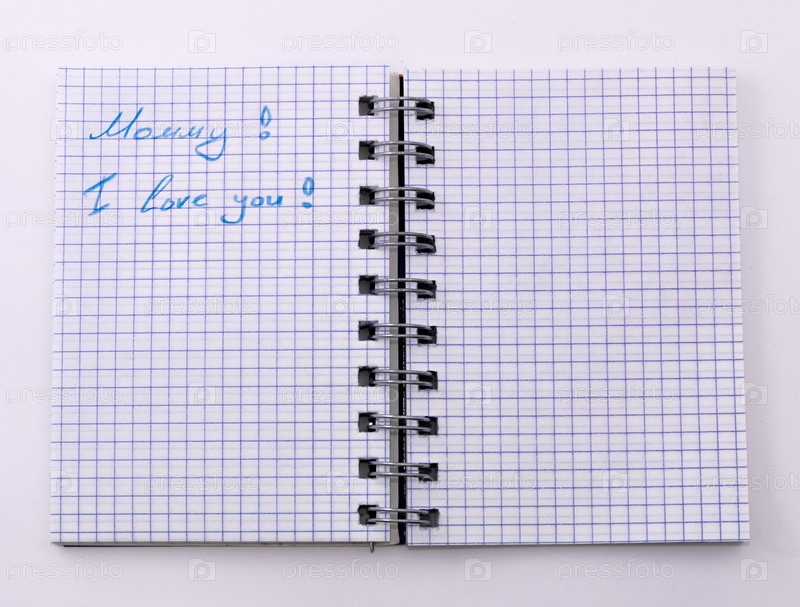 Mommy!
I love you!
pressfoto